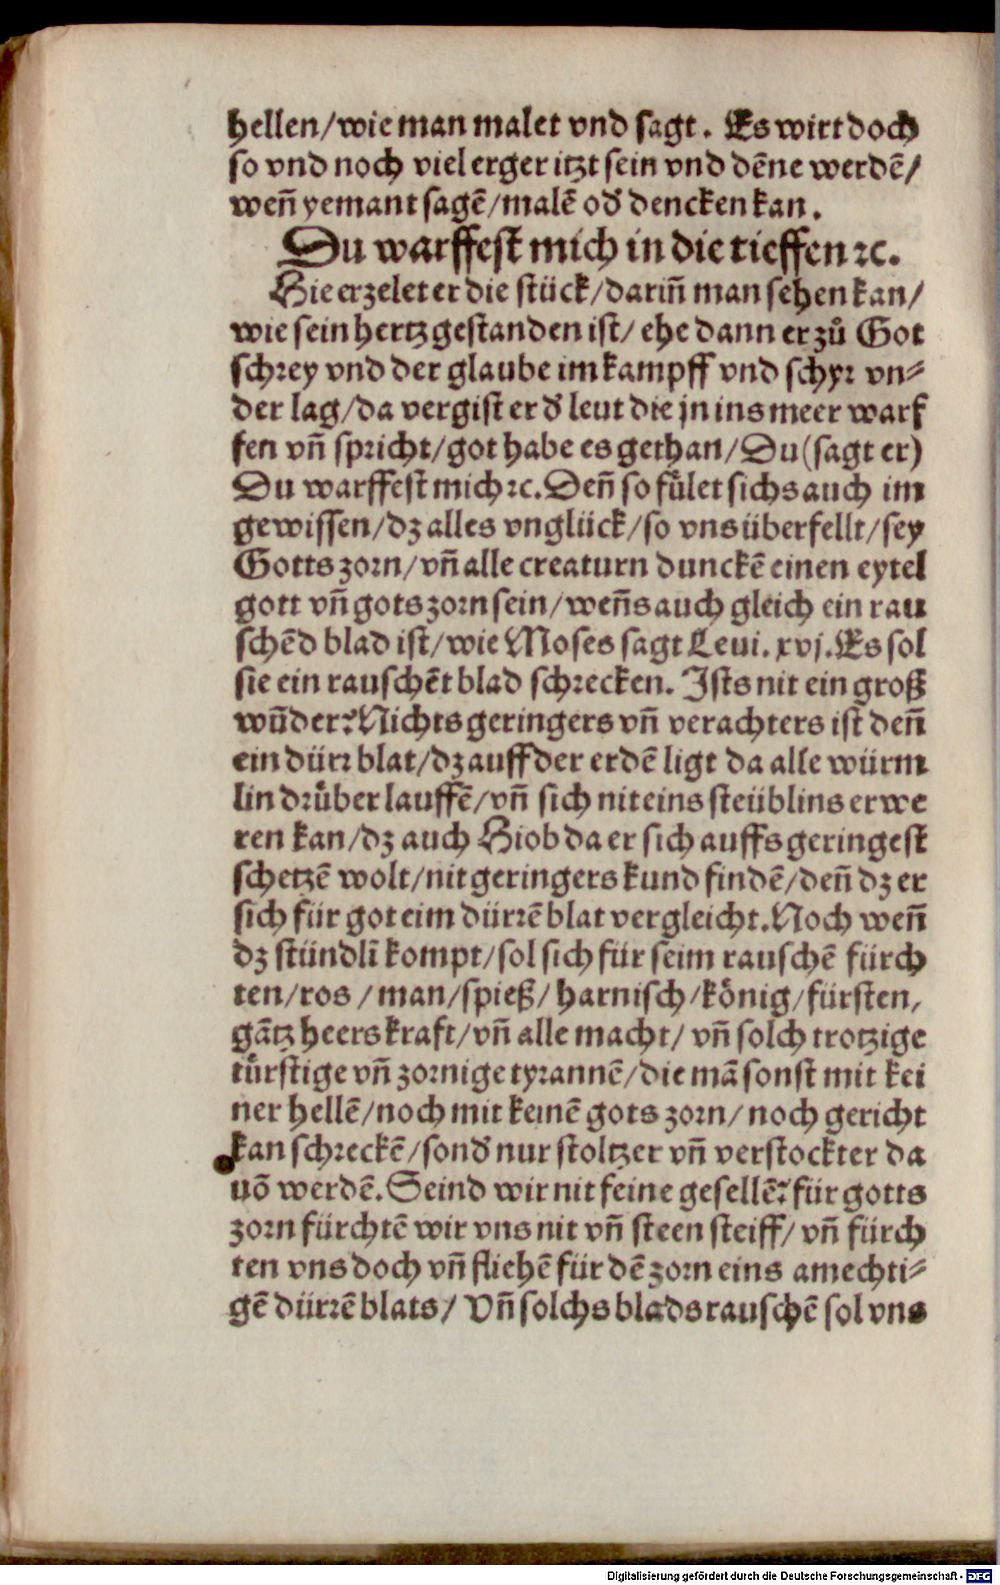 hellen/wie man malet vnd sagt. Es wirt doch
so vnd noch viel erger itzt sein vnd dēne werdē/
weñ yemant sagē/malē od' dencken kan.
Du warffest mich in die tieffen ꝛc.
Hie erzelet er die stück/dariñ man sehen kan/
wie sein hertz gestanden ist/ ehe dann er zů Got
schrey vnd der glaube im kampff vnd schyr vn⸗
der lag/da vergist er d' leut die jn ins meer warf
fen vñ spricht/got habe es gethan/Du (sagt er)
Du warffest mich ꝛc. Deñ so fület sichs auch im
gewissen/dz alles vnglück/so vns überfellt/sey
Gotts zorn/vñ alle creaturn dunckē einen eytel
gott vñ gots zorn sein/weñs auch gleich ein rau
schēd blad ist/wie Moses sagt Leui. xvj. Es sol
sie ein rauschēt blad schrecken. Ists nit ein groß
wūder? Nichts geringers vñ verachters ist deñ
ein dürr blat/dz auff der erdē ligt da alle würm
lin drüber lauffē/vñ sich nit eins steüblins erwe
ren kan/dz auch Hiob da er sich auffs geringest
schetzē wolt/nit geringers kund findē/deñ dz er
sich für got eim dürrē blat vergleicht. Noch weñ
dz stündlī kompt/sol sich für seim rauschē fürch
ten/ros/man/spieß/harnisch/könig/fürsten,
gātz heers kraft/vñ alle macht/ vñ solch trotzige
türstige vñ zornige tyrannē/die mā sonst mit kei
ner hellē/noch mit keinē gots zorn/ noch gericht
kan schreckē/sond' nur stoltzer vñ verstockter da
uō werdē. Seind wir nit feine gesellē? für gotts
zorn fürchtē wir vns nit vñ steen steiff/ vñ fürch
ten vns doch vñ fliehē für dē zorn eins amechti⸗
gē dürrē blats/ Vñ solchs blads rauschē sol vns
Digitalisierung gefördert durch die Deutsche Forschungsgemeinschaft - DFG